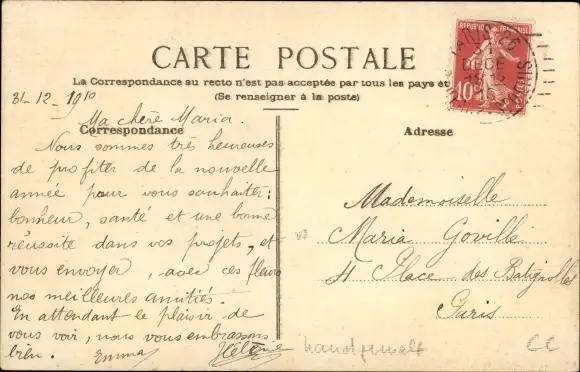 CARTE POSTALE
La Correspondance au recto n'est pas acceptée par tous les pays et
(Se renseigner à la poste)
REPUBLIQUE FRANÇAISE
10
DECE
31-12-1910
Ma chère Maria.
Correspondance
Nous sommes très heureuses
de profiter de la nouvelle
année pour vous souhaiter:
bonheur, santé et une bonne
réussite dans vos projets, et
vous envoyer, avec ces fleurs
nos meilleures amitiés.
En attendant le plaisir de
vous voir, nous vous embrassons
bien. Emma Hélène
Adresse
Mademoiselle
Maria Goville
Place des Batignolles
Paris
handgemalt
CC